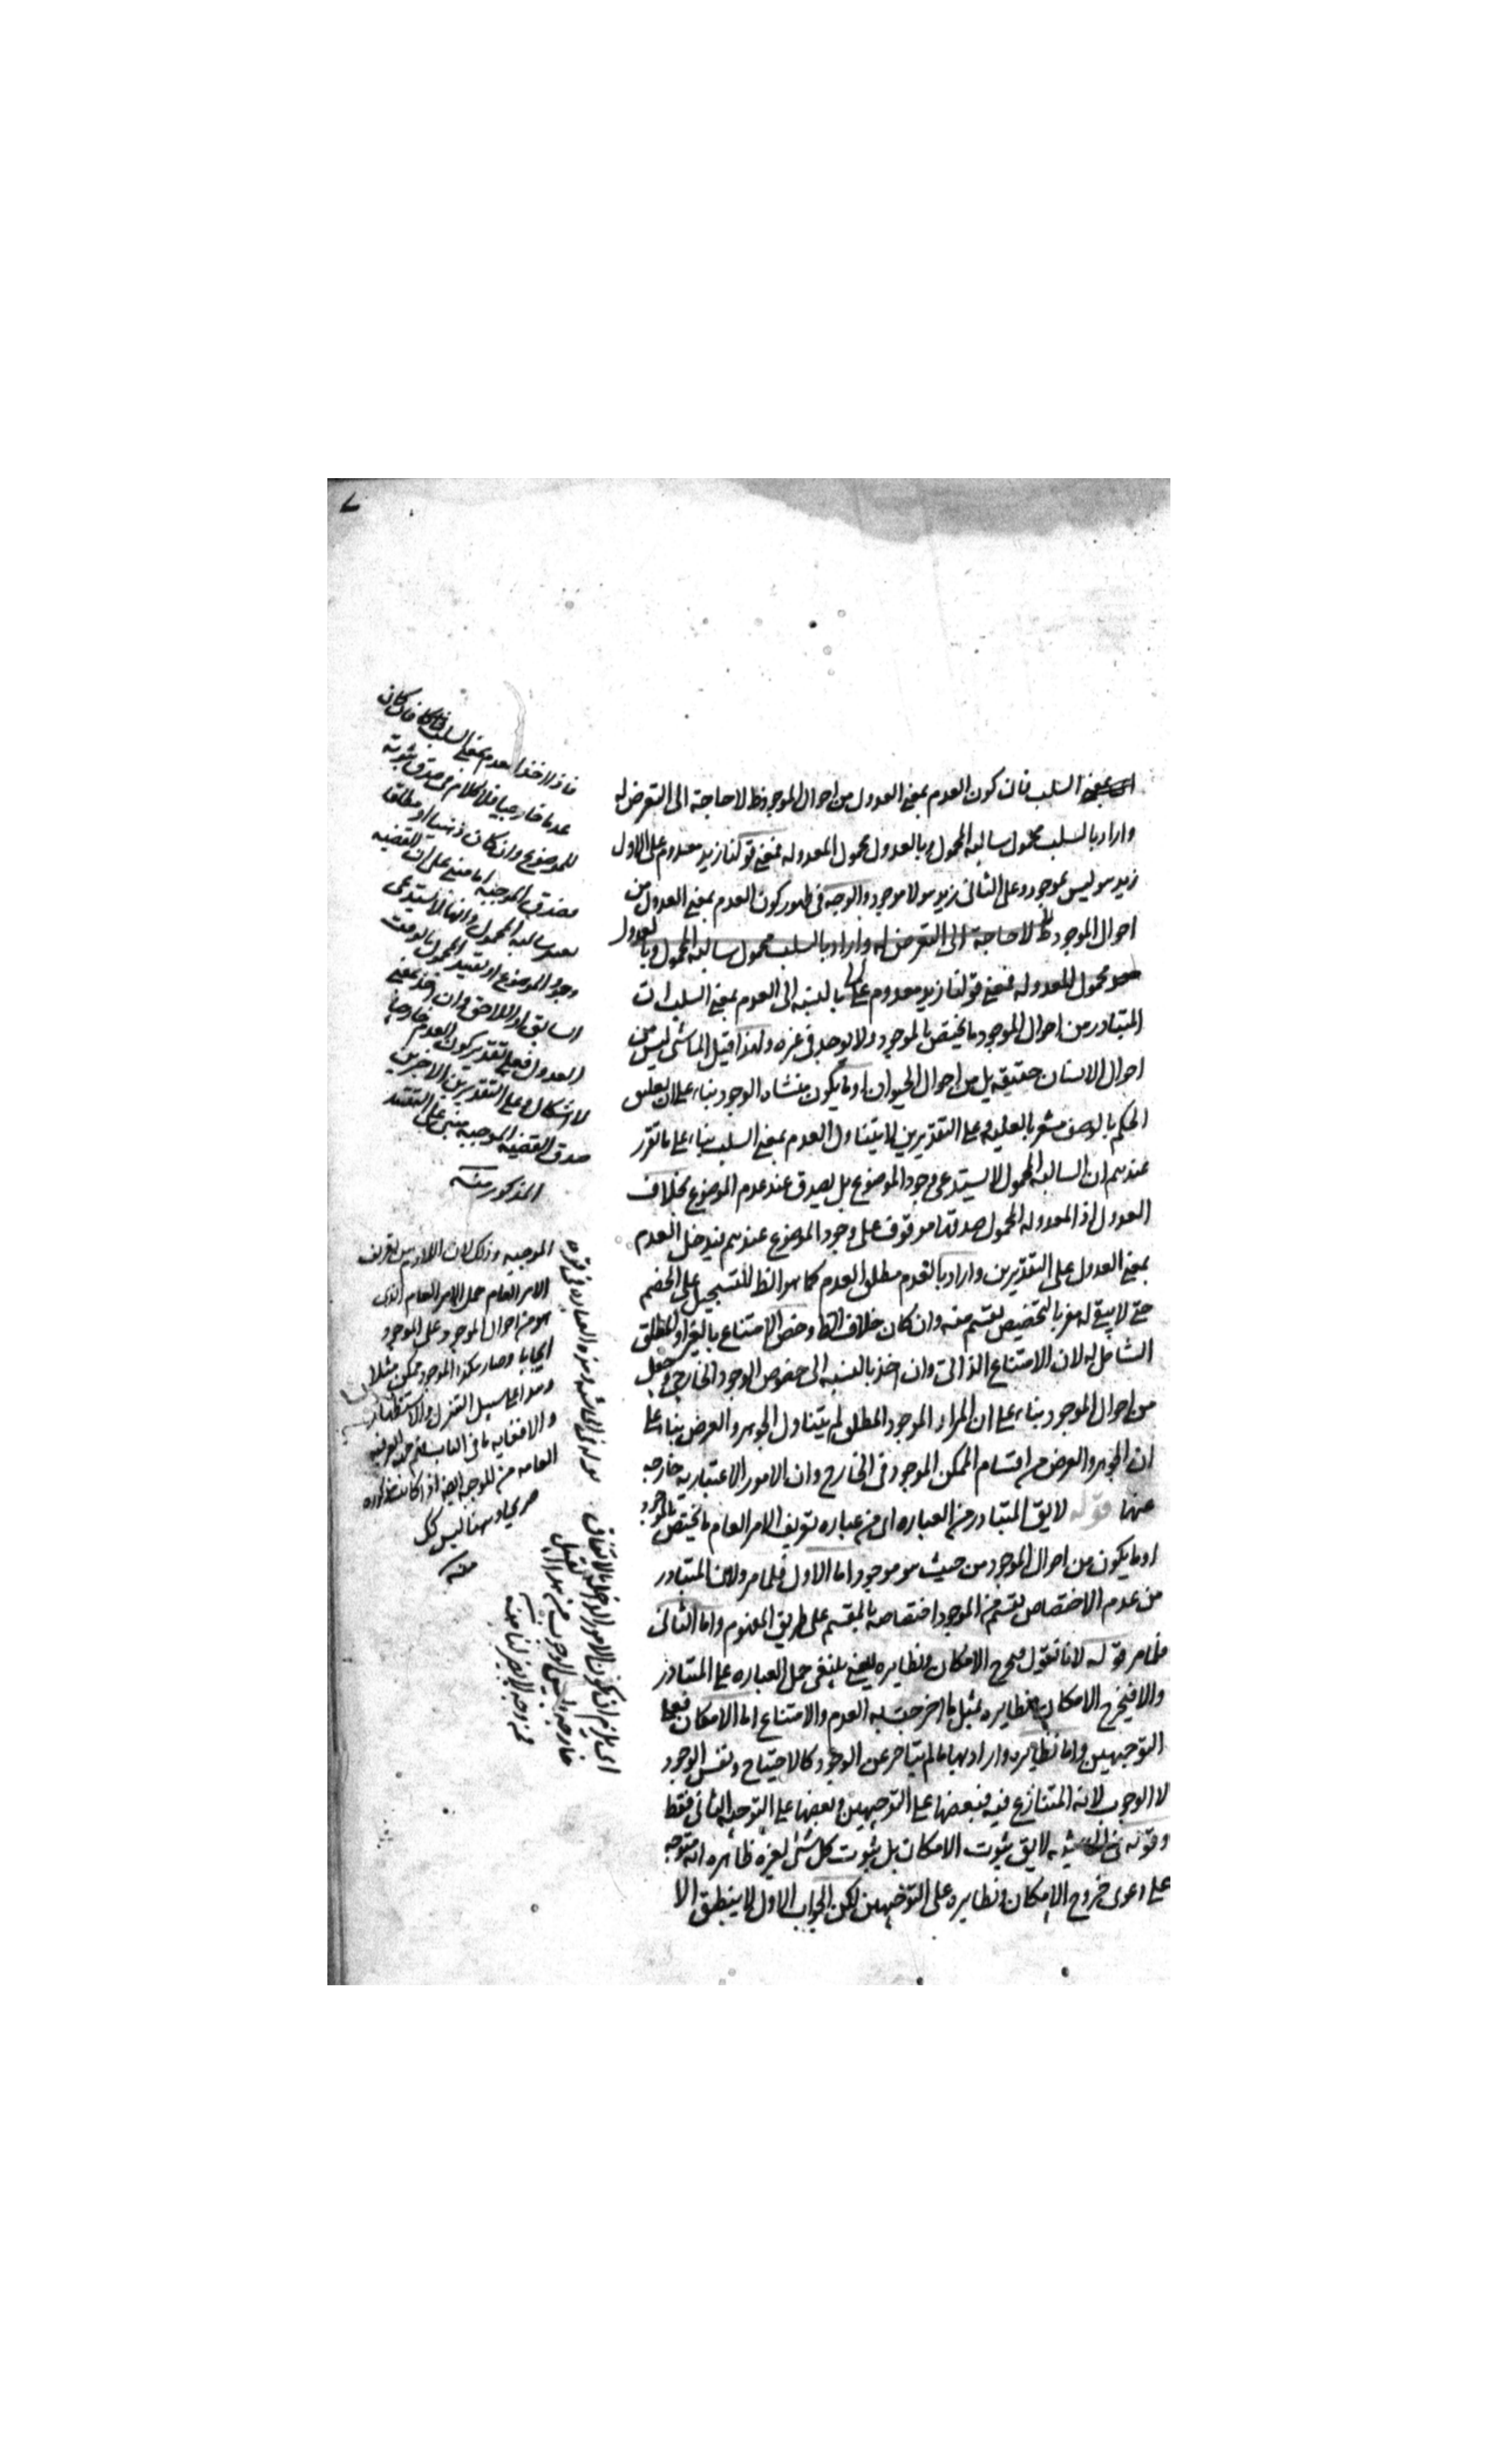 السلب فان كون العدم بمعنى العدول من احوال الموجود ظ لا حاجة الى التعرض له
واراد بالسلب محمول سالبه المحمول وبالعدول محمول المعدوله فمعنى قولنا زيد معدوم على الاول
زيد هو ليس بموجود وعلى الثانى زيد هو لا موجود والوجه فى ظهور كون العدم بمعنى العدول من
احوال الموجود ظ لا حاجة الى التعرض له واراد بالسلب محمول سالبه المحمول وبالعدول
محمول المعدوله فمعنى قولنا زيد معدوم بالنسبه الى العدم بمعنى السلب ان
المتبادر من احوال الموجود ما يختص بالموجود ولا يوجد فى غيره ولهذا قيل الماشى ليس من
احوال الانسان حقيقه بل من احوال الحيوان او ما يكون منشاه الوجود بناء على ان تعليق
الحكم بالوصف مشعر بالعليه وعلى التقديرين لا يتناول العدم بمعنى السلب بناء على ما تقرر
عندهم ان السالبه المحمول لا يستدعى وجود الموضوع بل يصدق عند عدم الموضوع بخلاف
العدول اذ المعدوله المحمول صدقها موقوف على وجود الموضوع عندهم فيدخل العدم
بمعنى العدول على التقديرين واراد بالعدم مطلق العدم كما هو الظ للتسجيل على الخصم
حتى لا يبقى له مفر بالتخصيص بقسم منه وان كان خلاف الظ وخص الامتناع بالغير او المطلق
الشامل له لان الامتناع الذاتى وان اخذ بالنسبه الى خصوص الوجود الخارجى وجعل
من احوال الموجود بناء على ان المراد الموجود المطلق لم يتناول الجوهر والعرض بناء على
ان الجوهر والعرض من اقسام الممكن الموجود فى الخارج وان الامور الاعتباريه خارجه
عنها قوله لايق المتبادر من العباره اى من عباره تعريف الامر العام ما يختص بالموجود
او ما يكون من احوال الموجود من حيث هو موجود اما الاول فلما مر ولان المتبادر
من عدم الاختصاص بقسم من الموجود اختصاصه بالمقسم على طريق المفهوم واما الثانى
فلما مر قوله لانا نقول فيخرج الامكان ونظايره يعنى ينبغى حمل العباره على المتبادر
والا فيخرج الامكان ونظايره بمثل ما اخرجت به العدم والامتناع اما الامكان فعلى
التوجيهين واما نظايره واراد بها ما لم يتاخر عن الوجود كالاحتياج ونفس الوجود
لا الوجوب لانه المتنازع فيه فبعضها على التوجيهين وبعضها على التوجيه الثانى فقط
وقوله فى الحاشيه لايق ثبوت الامكان بل ثبوت كل شئ لغيره ظاهره انه متوجه
على دعوى خروج الامكان ونظايره على التوجيهين لكن الجواب الاول لا ينطبق الا
عدما خارجيا فلا كلام فى صدق ثبوته
للموضوع وان كان ذهنيا او مطلقا
فصدق الموجبه اما مبنى على ان القضيه
سالبه المحمول وانها لا تستدعى
وجود الموضوع او تقييد المحمول بالوقت
السابق او اللاحق وان اخذ بمعنى
العدول فعلى تقدير كون العدم خارجيا
لا اشكال وعلى التقديرين الاخيرين
صدق القضيه الموجبه مبنى على التقييد
المذكور منه
الموجبه وذلك لان اللازم من تعريف
الامر العام حمل الامر العام الذى
هو من احوال الموجود على الموجود
ايجابا وصار هكذا الموجود ممكن مثلا
وهذا على سبيل التنزل والاستظهار
العامه من الموجبه
صريحا وههنا ليس كك
منه
اى يلزم ان يكون الامور الداخله بالاتفاق